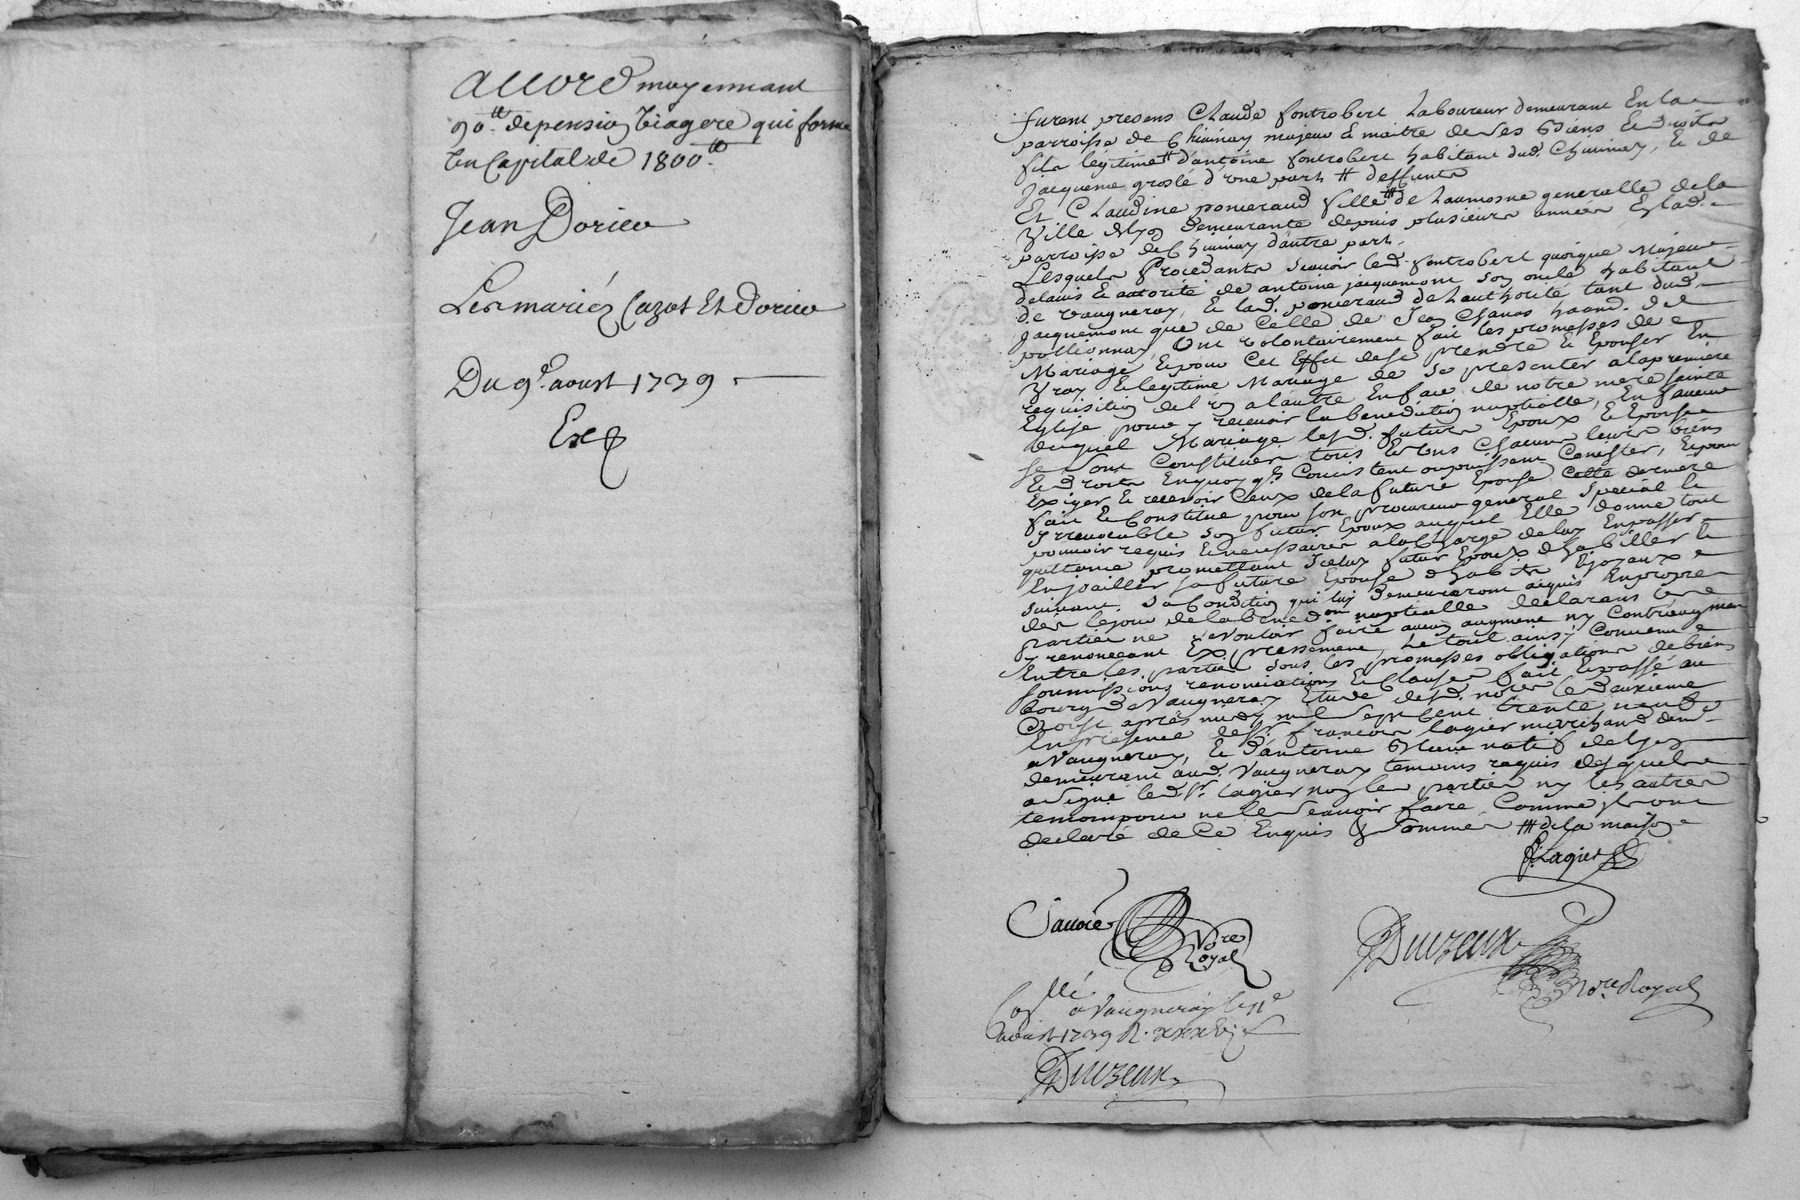 accord moyennant
90.tt de pension viagere qui forme
un Capital de 1800.tt
Jean Dorieu
Les mariéz Cazot Et Dorieu
Du 9e. aoust 1739.
Exp
furent presens Claude fontrobert Laboureur demeurant En la
parroisse de Chivinay majeur & maitre de ses Biens Et droits
fils legitime # d'antoine fontrobert habitant dud. Chivinay, & de
Jacqueme groslé d'vne part # deffunts
Et Claudine ponceraud fille ### de Laumosne generalle de la
Ville de lyon demeurante depuis plusieurs années En lad.
parroisse de Chivinay d'autre part.
Lesquels Procedants sçauoir led. fontrobert quoique Majeur
de lauis & autorité de antoine jacquemont son oncle habitant
de vaugneray, & lad. ponceraud de Lauthorité tant dud.
jacquemont que de Celle de Jean Chanas haand. de
pollionnay, Ont volontairement fait les promesses de
Mariage Et pour Cet Effet de se prendre & Epouser En
Vray & legitime Mariage de se presenter a la premiere
requisition de l'vn a lautre En face de notre mere sainte
Eglise pour y recevoir la benediction nuptialle, En faueur
duquel Mariage lesd. futurs Epoux & Epouse
se sont Constitués tous Et Vns Chacuns leurs biens
& droits En quoy qls Concistent ou puissent Concister, Et pour
Exiger & recevoir Ceux de la future Epouse Cette derniere
fait & Constitue pour son procureur general Special &
yrreuocable son futur Epoux auquel Elle donne tout
pouuoir requis & necessaires a la Charge de luy En passer
quittance promettant Iceluy futur Epoux d'habiller &
Enjoailler sa future Epouse d'habits & joyaux
suivant sa Condition qui luy demeureront acquis En propre
dès le jour de la bened.on nuptialle declarans les
parties ne vouloir faire aucun augment ny Contreaugment
y renonceant Expressement, Le tout ainsy Convenu
Entre les parties sous les promesses obligations de biens
soumissions renonciations & Clauses fait & passé au
bourg de Vaugneray Etude desd. nores le deuxieme
aoust après midy mil sept Cent trente neuf
En presence de sr. françois lagier marchand dem.t
a Vaugneray, & d'antoine natif de lyon
demeurant aud. Vaugneray temoins requis desquels
a signé led. sr. lagier non les parties ny les autres
temoins pour ne le sçauoir faire Comme yls ont
declaré de Ce Enquis & sommés ### de la maison
f. Lagier
Nore Royal
Duvzeux
Nore Royal
Conllé a Vaugneray le 11e
aoust 1739 R. xxx
Duvzeux